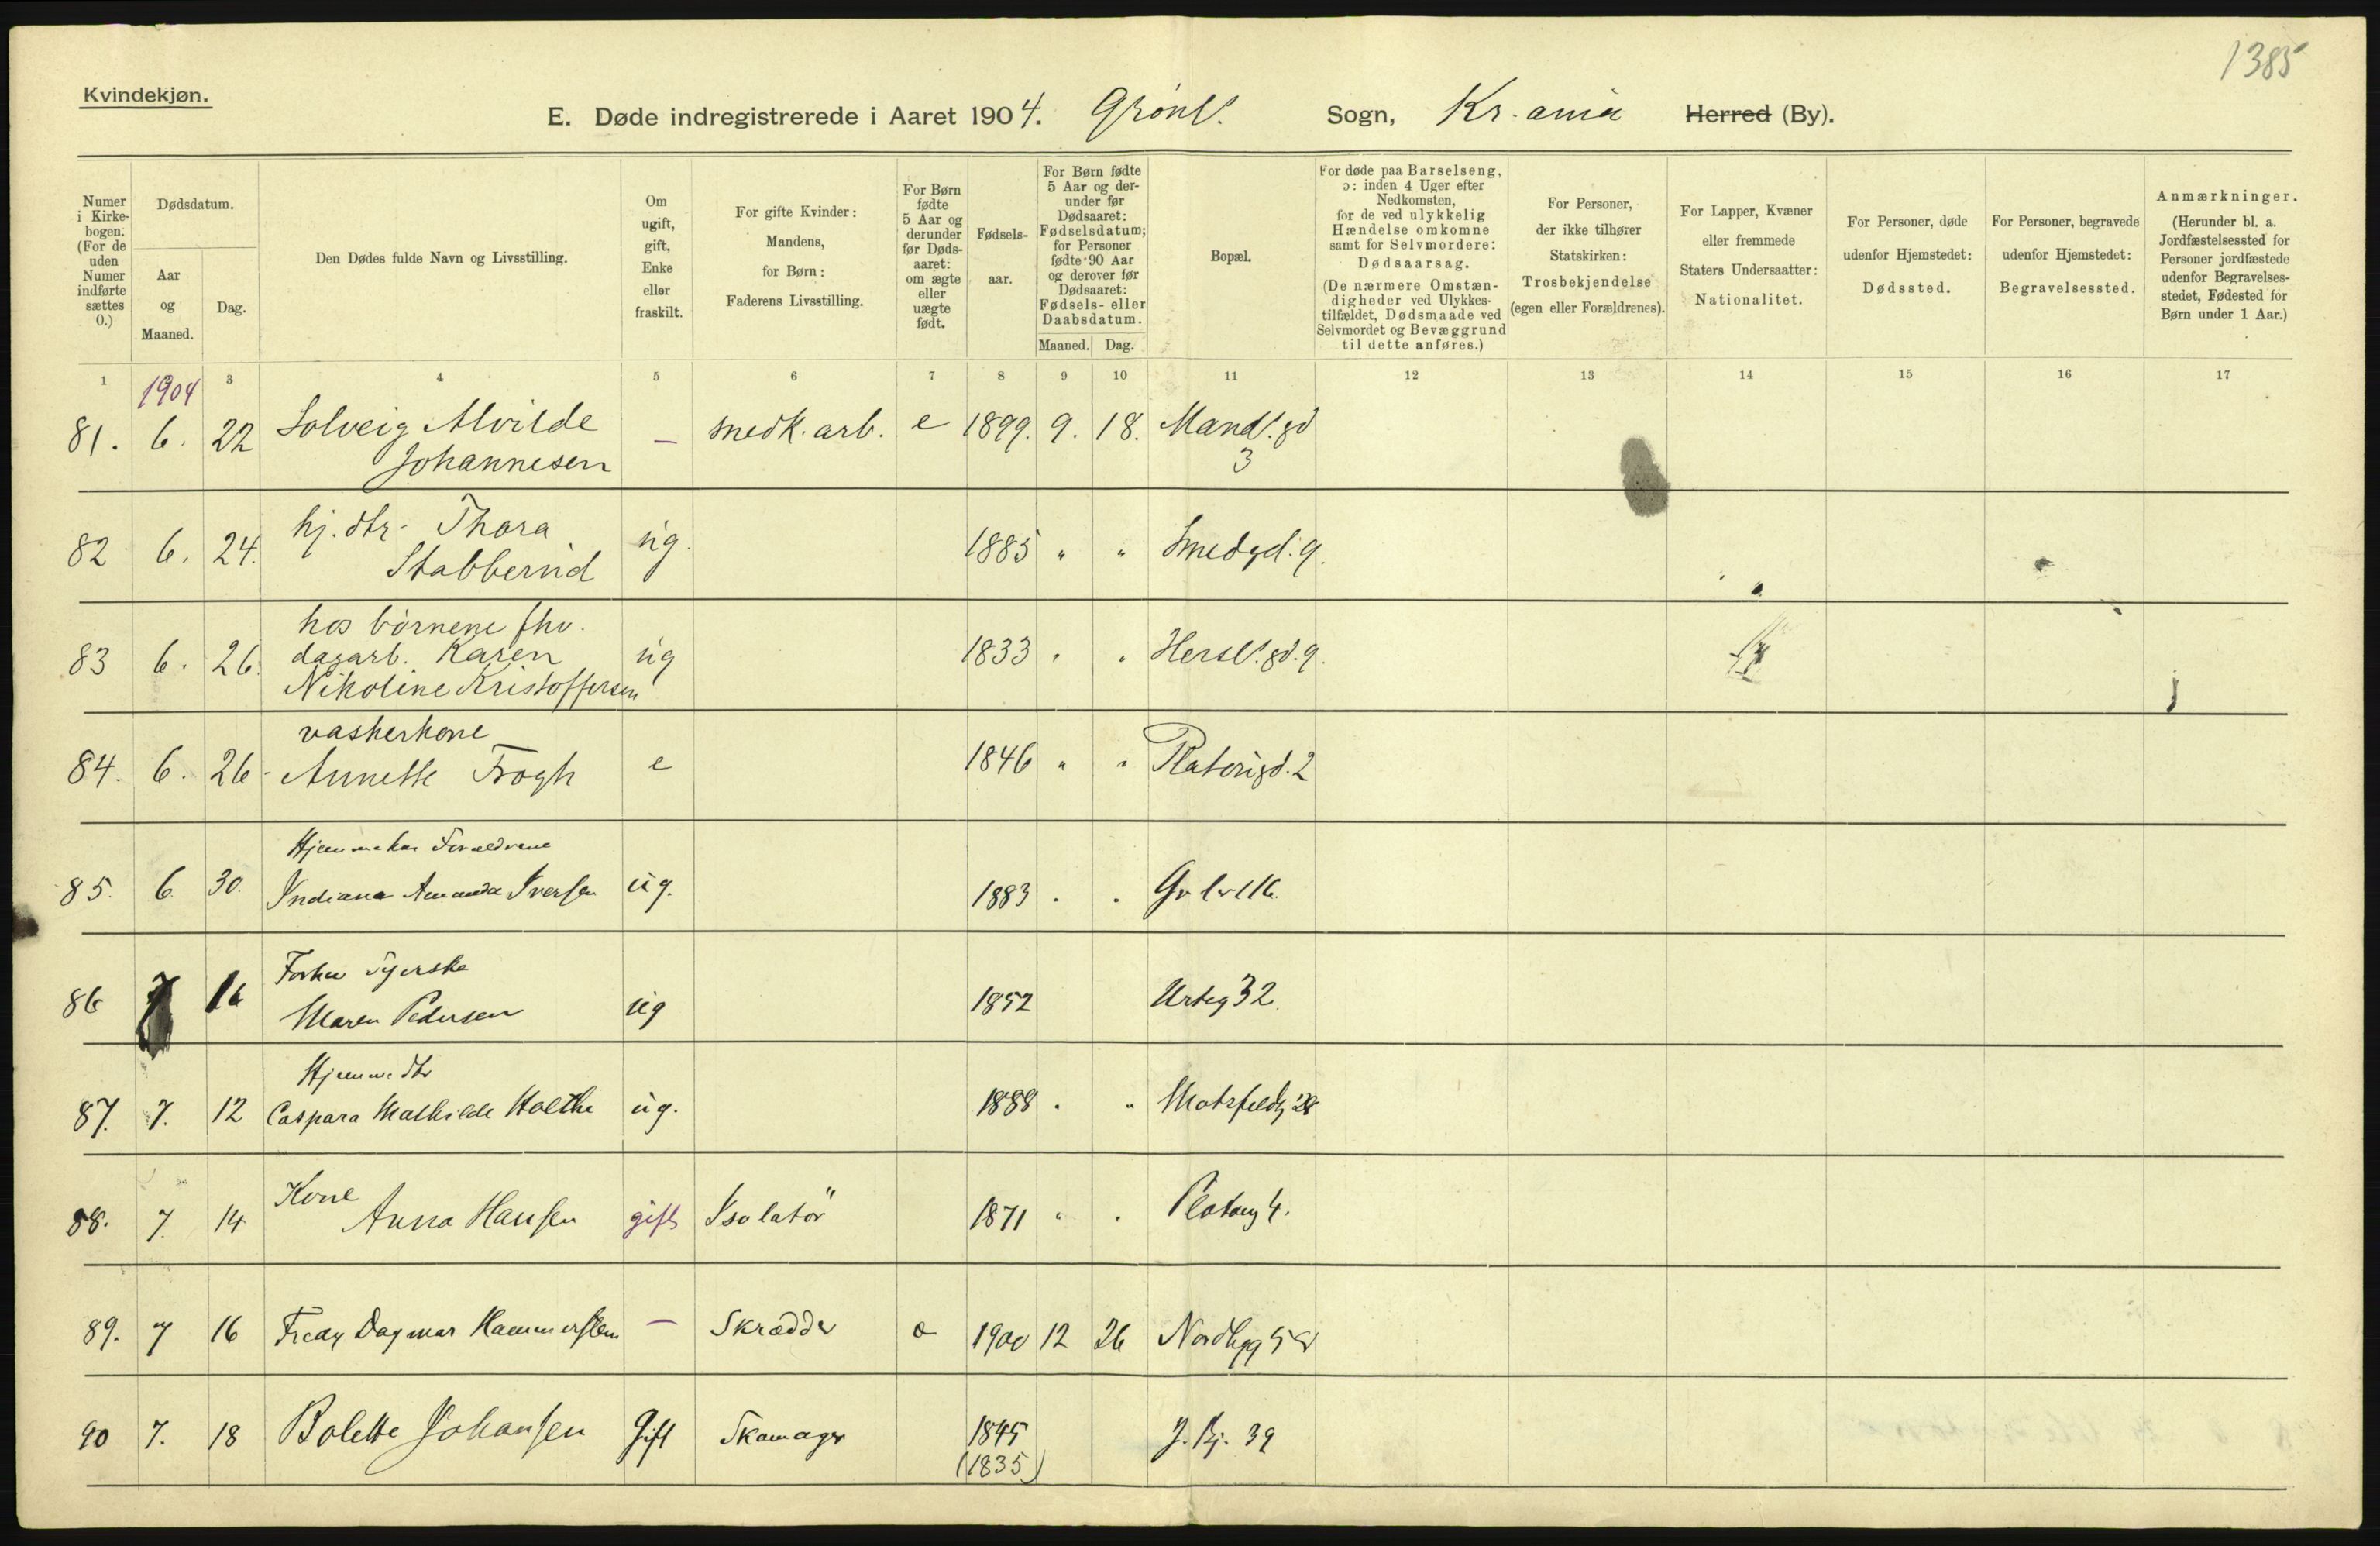 1385
Kvindekjøn.
E. Døde indregistrerede i Aaret 1904. Grønl. Sogn, Kr.ania Herred (By).
Numer i Kirkebogen. (For de uden Numer indførte sættes 0.)
Dødsdatum.
Aar og Maaned.
Dag.
Den Dødes fulde Navn og Livsstilling.
Om ugift, gift, Enke eller fraskilt.
For gifte Kvinder: Mandens, for Børn: Faderens Livsstilling.
For Børn fødte 5 Aar og derunder før Dødsaaret: om ægte eller uægte født.
Fødselsaar.
For Børn fødte 5 Aar og derunder før Dødsaaret: Fødselsdatum; for Personer fødte 90 Aar og derover før Dødsaaret: Fødsels- eller Daabsdatum.
Maaned. Dag.
Bopæl.
For døde paa Barselseng, ɔ: inden 4 Uger efter Nedkomsten, for de ved ulykkelig Hændelse omkomne samt for Selvmordere: Dødsaarsag. (De nærmere Omstændigheder ved Ulykkestilfældet, Dødsmaade ved Selvmordet og Bevæggrund til dette anføres.)
For Personer, der ikke tilhører Statskirken: Trosbekjendelse (egen eller Forældrenes).
For Lapper, Kvæner eller fremmede Staters Undersaatter: Nationalitet.
For Personer, døde udenfor Hjemstedet: Dødssted.
For Personer, begravede udenfor Hjemstedet: Begravelsessted.
Anmærkninger. (Herunder bl. a. Jordfæstelsessted for Personer jordfæstede udenfor Begravelsesstedet, Fødested for Børn under 1 Aar.)
1 3 4 5 6 7 8 9 10 11 12 13 14 15 16 17
1904
81. 6. 22 Solveig Alvilde — snedk. arb. e 1899. 9. 18. Mandl. gd
Johannesen 3
82 6. 24. hj. dtr. Thora ug. 1885 " " Smedgd. 9.
Stabberud
hos børnene fhv.
83 6. 26. dagarb. Karen ug 1833 " " Hersl. gd. 9.
Nikoline Kristoffersen
vaskerkone
84. 6. 26. Annette Trogh e 1846 " " Platousgd. 2
Hjemme hos Forældrene
85. 6. 30. Indiana Amanda Iversen ug. 1883 . .
86 7 16 Syerske
Maren Pedersen ug 1852 Urteg 32.
Hjemme dtr
87. 7. 12 Caspara Mathilde Holthe ug. 1888 . " Motzfeldtg 28
Kone
88. 7. 14 Anna Hansen gift Isolatør 1871 " . Platoug 4.
89. 7 16 Dagmar Hammersten — Skrædder 1900 12 26
90 7. 18 Bolette Johansen Gift Skomager 1845 39
(1835)